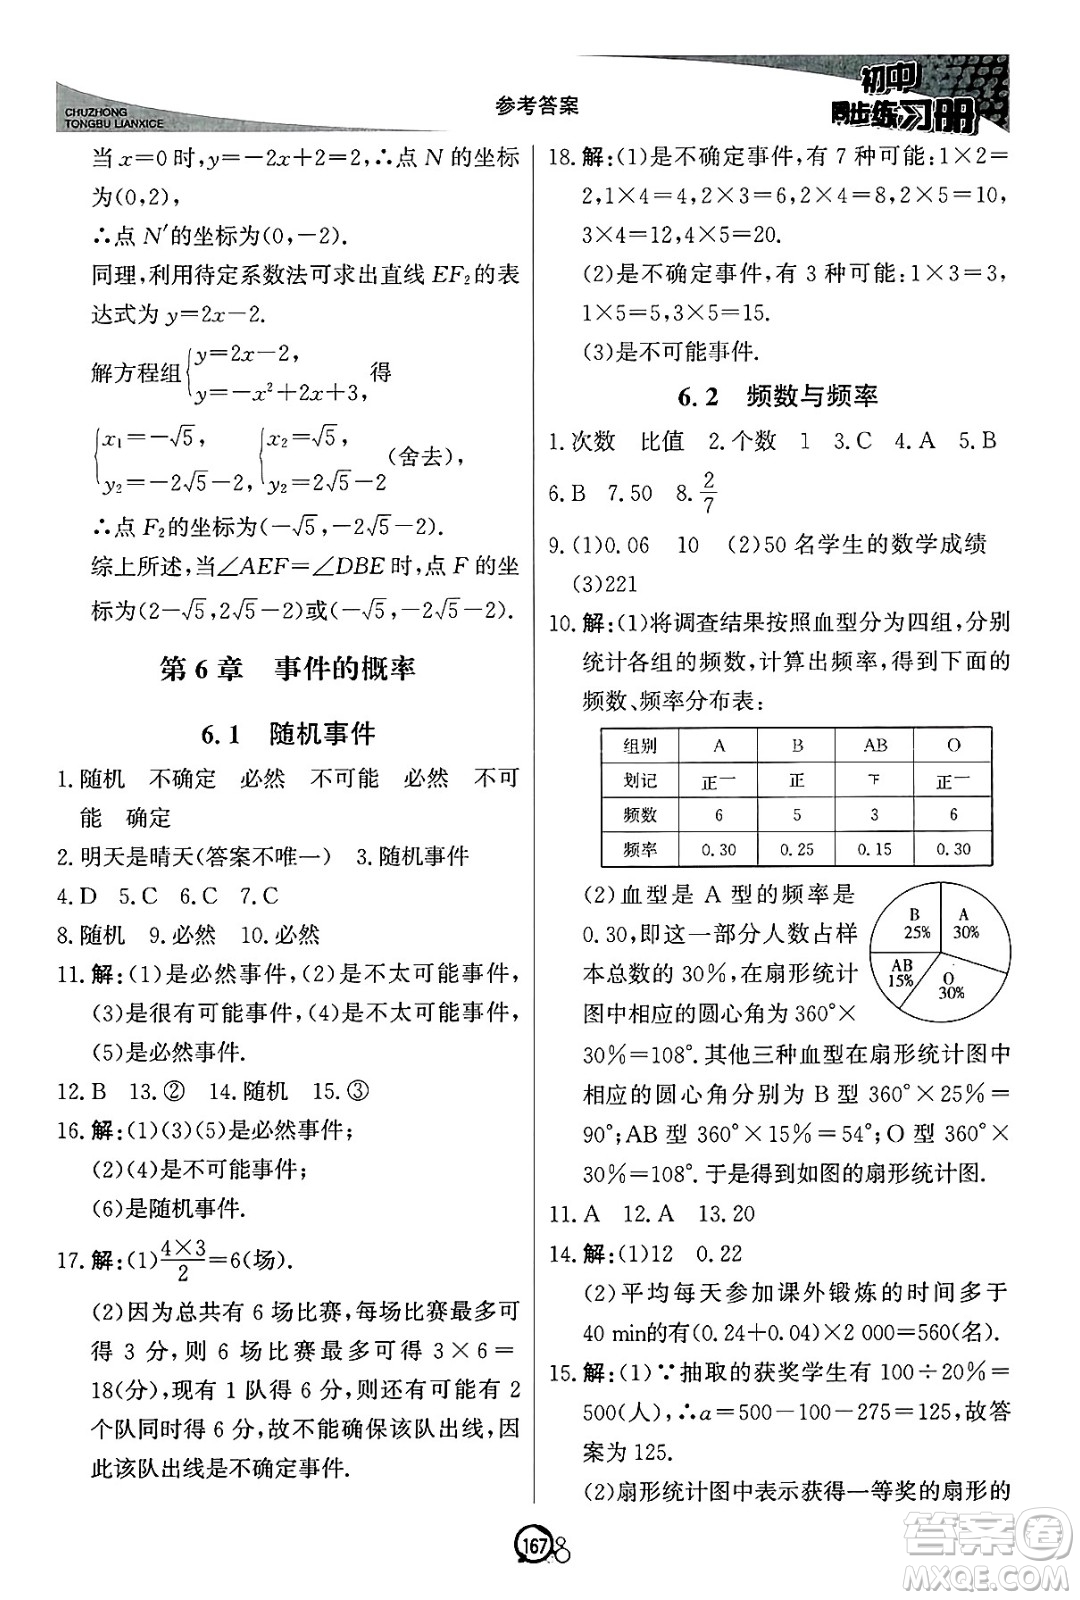 CHUZHONG
TONGBU LIANXICE
参考答案
初中
同步练习册
当x=0时,y=-2x+2=2,∴点N的坐标
为(0,2),
∴点N′的坐标为(0,-2).
同理,利用待定系数法可求出直线EF₂的表
达式为y=2x-2.
解方程组{y=2x-2, y=-x²+2x+3, 得
{x₁=-√5, y₂=-2√5-2, {x₂=√5, y₂=2√5-2 (舍去),
∴点F₂的坐标为(-√5,-2√5-2).
综上所述,当∠AEF=∠DBE时,点F的坐
标为(2-√5,2√5-2)或(-√5,-2√5-2).
第6章 事件的概率
6.1 随机事件
1.随机 不确定 必然 不可能 必然 不可
能 确定
2.明天是晴天(答案不唯一) 3.随机事件
4.D 5.C 6.C 7.C
8.随机 9.必然 10.必然
11.解:(1)是必然事件,(2)是不太可能事件,
(3)是很有可能事件,(4)是不太可能事件,
(5)是必然事件.
12.B 13.② 14.随机 15.③
16.解:(1)(3)(5)是必然事件;
(2)(4)是不可能事件;
(6)是随机事件.
17.解:(1)4×3/2=6(场).
(2)因为总共有6场比赛,每场比赛最多可
得3分,则6场比赛最多共得3×6=
18(分),现有1队得6分,则还有可能有2
个队同时得6分,故不能确保该队出线,因
此该队出线是不确定事件.
18.解:(1)是不确定事件,有7种可能:1×2=
2,1×4=4,2×3=6,2×4=8,2×5=10,
3×4=12,4×5=20.
(2)是不确定事件,有3种可能:1×3=3,
1×5=5,3×5=15.
(3)是不可能事件.
6.2 频数与频率
1.次数 比值 2.个数 1 3.C 4.A 5.B
6.B 7.50 8.2/7
9.(1)0.06 10 (2)50名学生的数学成绩
(3)221
10.解:(1)将调查结果按照血型分为四组,分别
统计各组的频数,计算出频率,得到下面的
频数、频率分布表:
组别 A B AB O
划记 正一 正 下 正一
频数 6 5 3 6
频率 0.30 0.25 0.15 0.30
(2)血型是A型的频率是
0.30,即这一部分人数占样
本总数的30%,在扇形统计
图中相应的圆心角为360°×
30%=108°.其他三种血型在扇形统计图中
相应的圆心角分别为B型360°×25%=
90°;AB型360°×15%=54°;O型360°
×30%=108°.于是得到如图的扇形统计图.
B 25%
A 30%
AB 15%
O 30%
11.A 12.A 13.20
14.解:(1)12 0.22
(2)平均每天参加课外锻炼的时间多于
40 min的有(0.24+0.04)×2 000=560(名).
15.解:(1)∵抽取的获奖学生有100÷20%=
500(人),∴a=500-100-275=125,故答
案为125.
(2)扇形统计图中表示获得一等奖的扇形的
167
答案卷
MXQE.COM